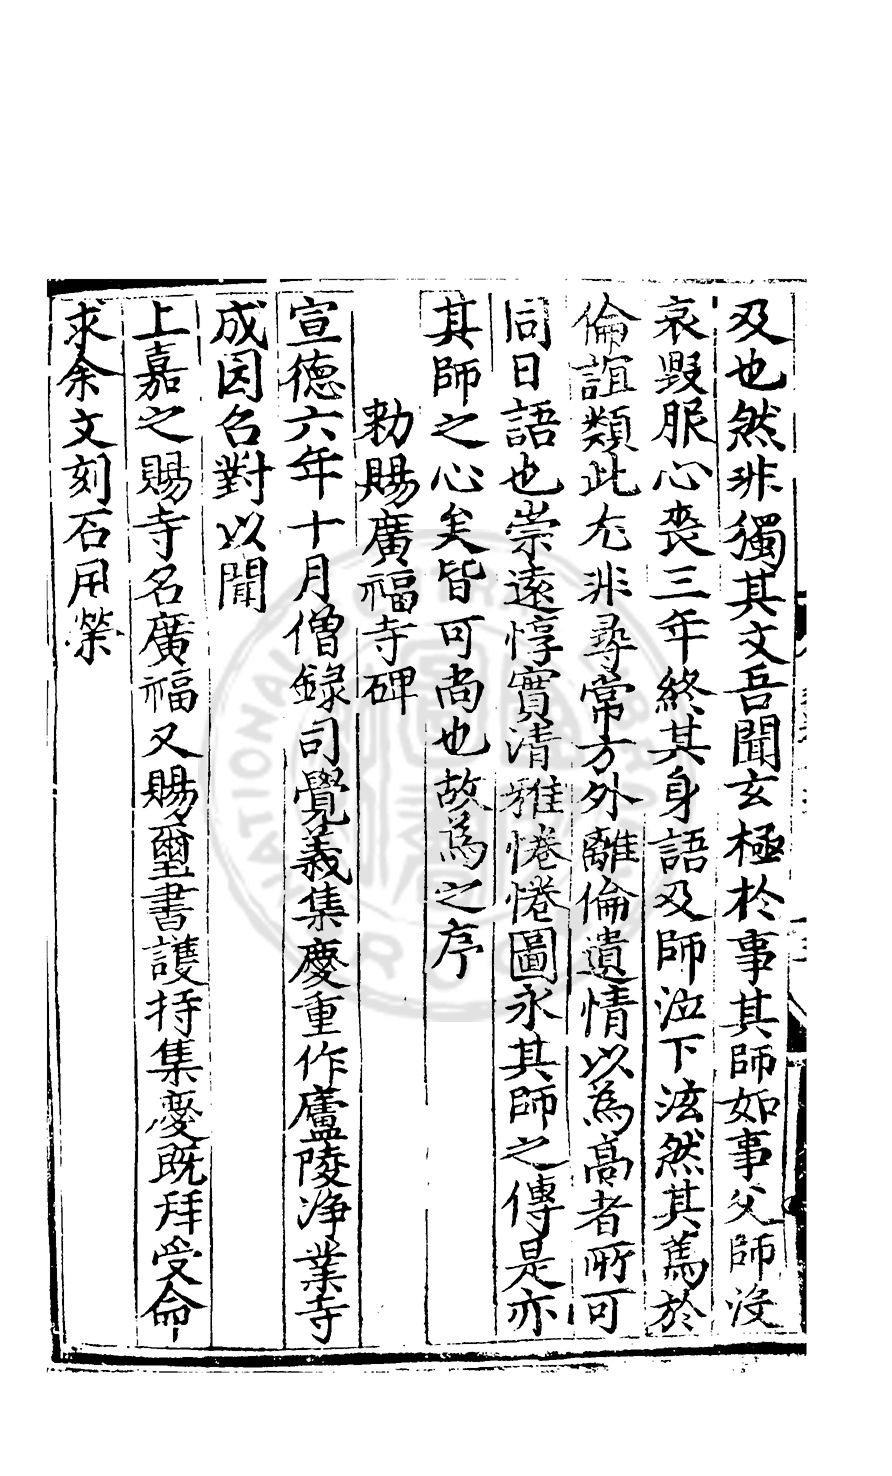 及也然非獨其文吾聞玄極於事其師如事父師沒
哀毀服心喪三年終其身語及師泣下泫然其篤於
倫誼類此尤非尋常方外離倫遺情以為高者所可
同日語也崇遠惇實清雅惓惓圖永其師之傳是亦
其師之心矣皆可尚也故為之序
勑賜廣福寺碑
宣德六年十月僧錄司覺義集慶重作廬陵淨業寺
成因召對以聞
上嘉之賜寺名廣福又賜璽書護持集慶既拜受命
求余文刻石用榮